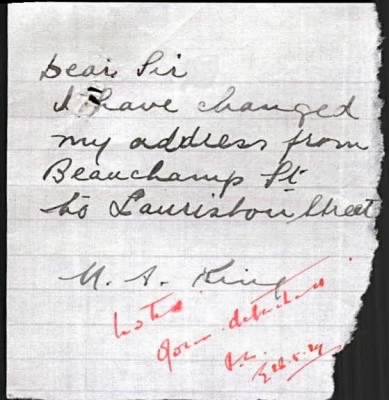 Dear Sir
I have changed
my address from
Beauchamp St
to Lauriston Street
M. A. King
Noted